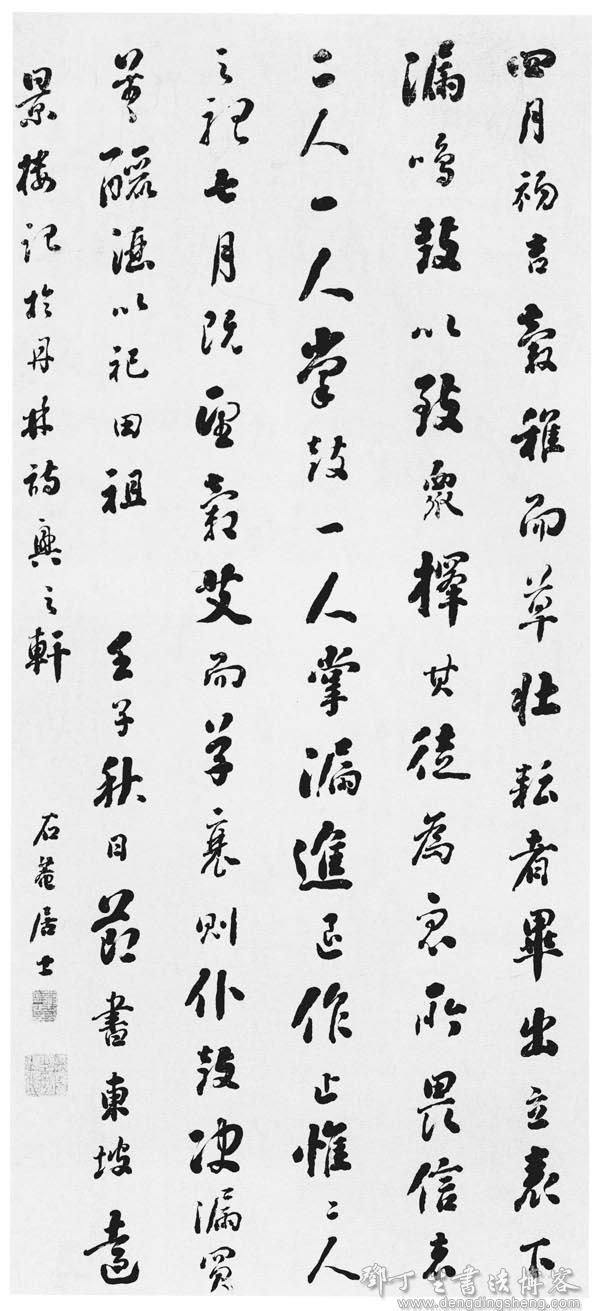 四月初吉穀稚而草壯耘者畢出立表下
漏鳴鼓以致眾擇其徒為眾所畏信者
二人一人掌鼓一人掌漏進退作止惟二人
之聽七月既望穀艾而草衰則仆鼓決漏買
羊釃酒以祀田祖 壬子秋日節書東坡遠
景樓記於丹林詩興之軒 石菴居士
鄧丁生書法博客
www.dengdingsheng.com